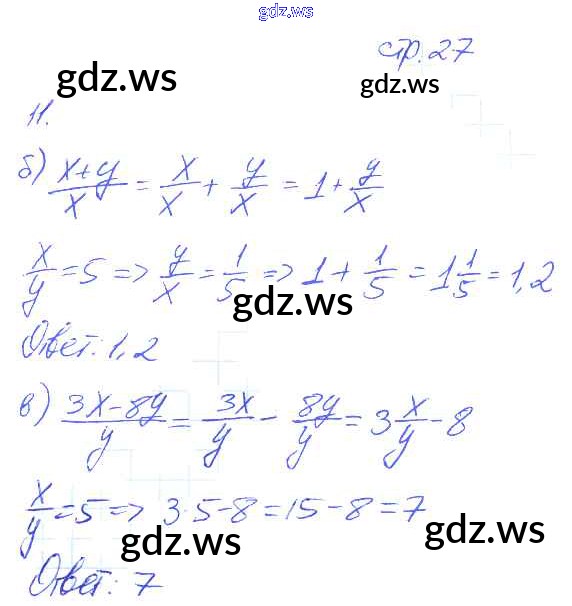 gdz.ws
стр. 27
gdz.ws
gdz.ws
11.
б) (x+y)/x = x/x + y/x = 1 + y/x
x/y = 5 => y/x = 1/5 => 1 + 1/5 = 1 1/5 = 1,2
gdz.ws
Ответ: 1,2
в) (3x-8y)/y = 3x/y - 8y/y = 3 x/y - 8
x/y = 5 => 3·5-8=15-8=7
gdz.ws
gdz.ws
Ответ: 7